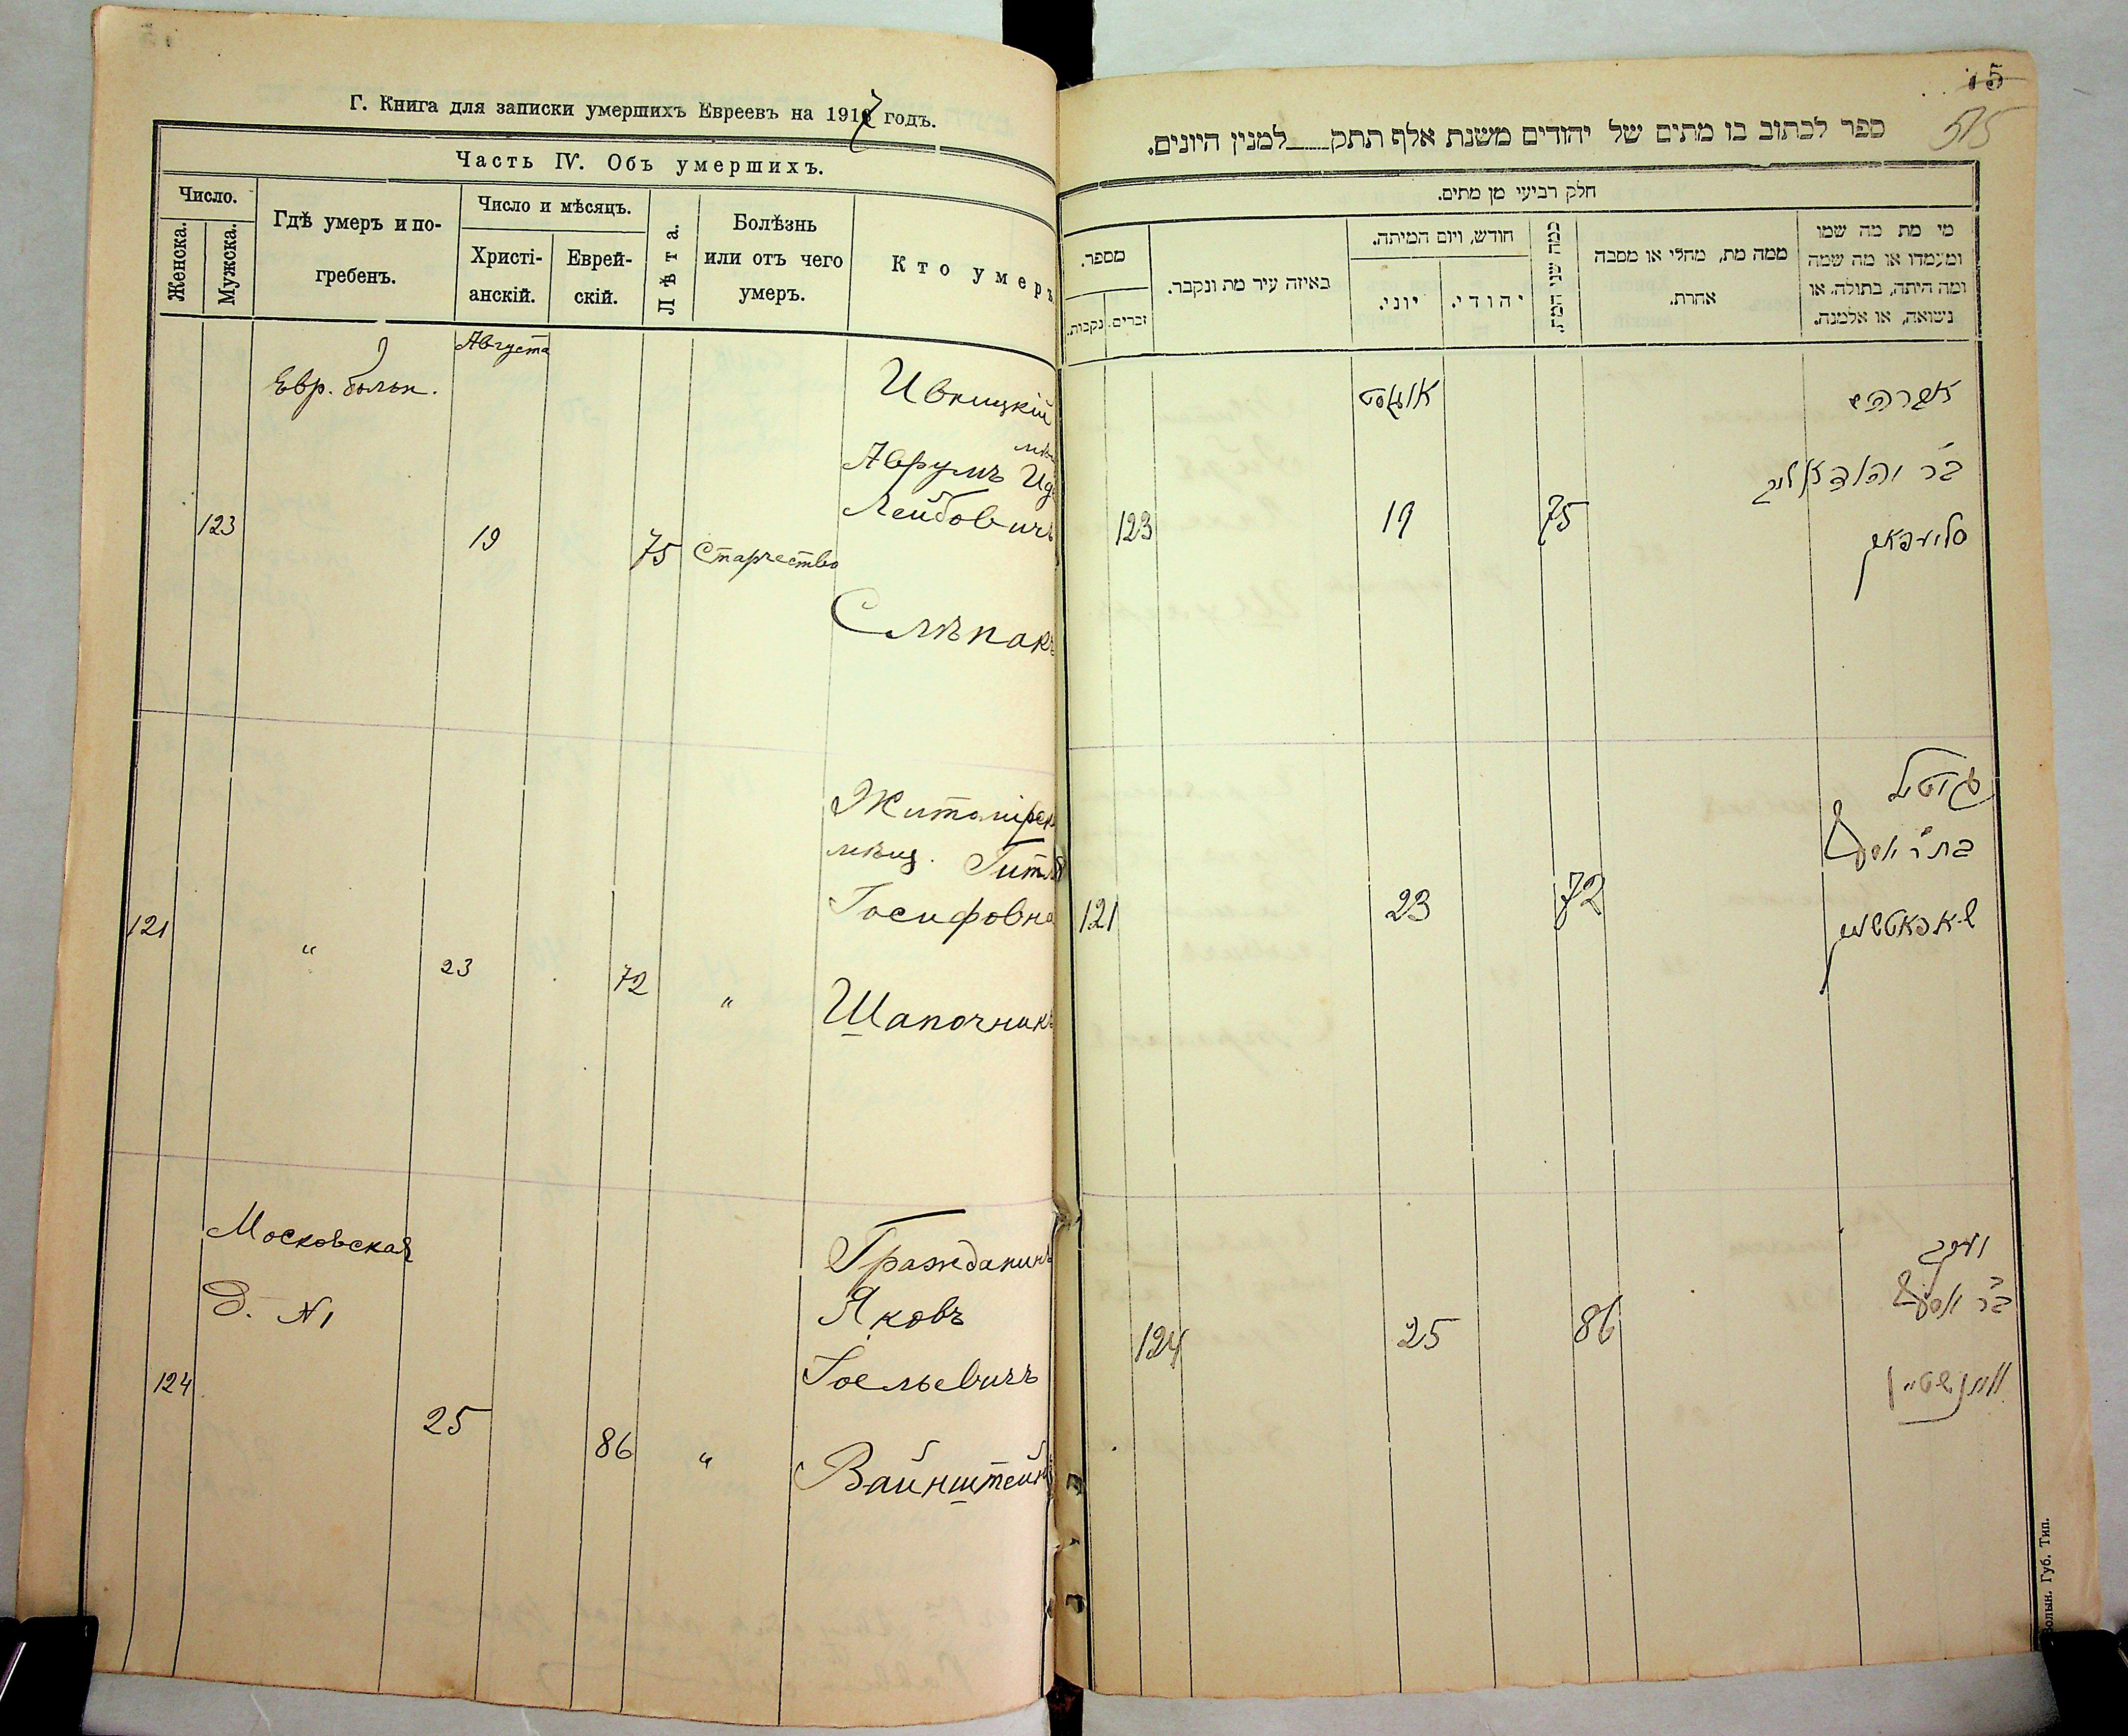 Г. Книга для записки умершихъ Евреевъ на 1917 годъ.
Часть IV. Объ умершихъ.
Число.
Женска.
Мужска.
Гдѣ умеръ и по-
гребенъ.
Число и мѣсяцъ.
Христі-
анскій.
Еврей-
скій.
Лѣта.
Болѣзнь
или отъ чего
умеръ.
Кто умеръ
Августа
Евр. больн.
Ивницкій
мѣщ
Аврумъ Ид
Лейбовичъ
123
19
75
Старчество
Слѣпакъ
Житомірск
мѣщ. Гитля
Іосифовна
121
"
23
72
"
Шапочникъ
Московская
д. №1
Гражданинъ
Яковъ
Іосьевичъ
124
25
86
"
Вайнштейнъ
15
515
ספר לכתוב בו מתים של יהודים משנת אלף תתק___למנין היונים.
חלק רביעי מן מתים.
מספר.
זכרים.
נקבות.
באיזה עיר מת ונקבר.
חודש, ויום המיתה.
יוני.
יהודי.
כמה שני המת.
ממה מת, מחלי או מסבה
אחרת.
מי מת מה שמו
ומעמדו או מה שמה
ומה היתה, בתולה, או
נשואה, או אלמנה.
אוגוסט
123
19
75
סליעפאק
121
23
72
בת ר' יוסף
124
25
86
יעקב
בר יוסף
וויינשטיין
Волын. Губ. Тип.